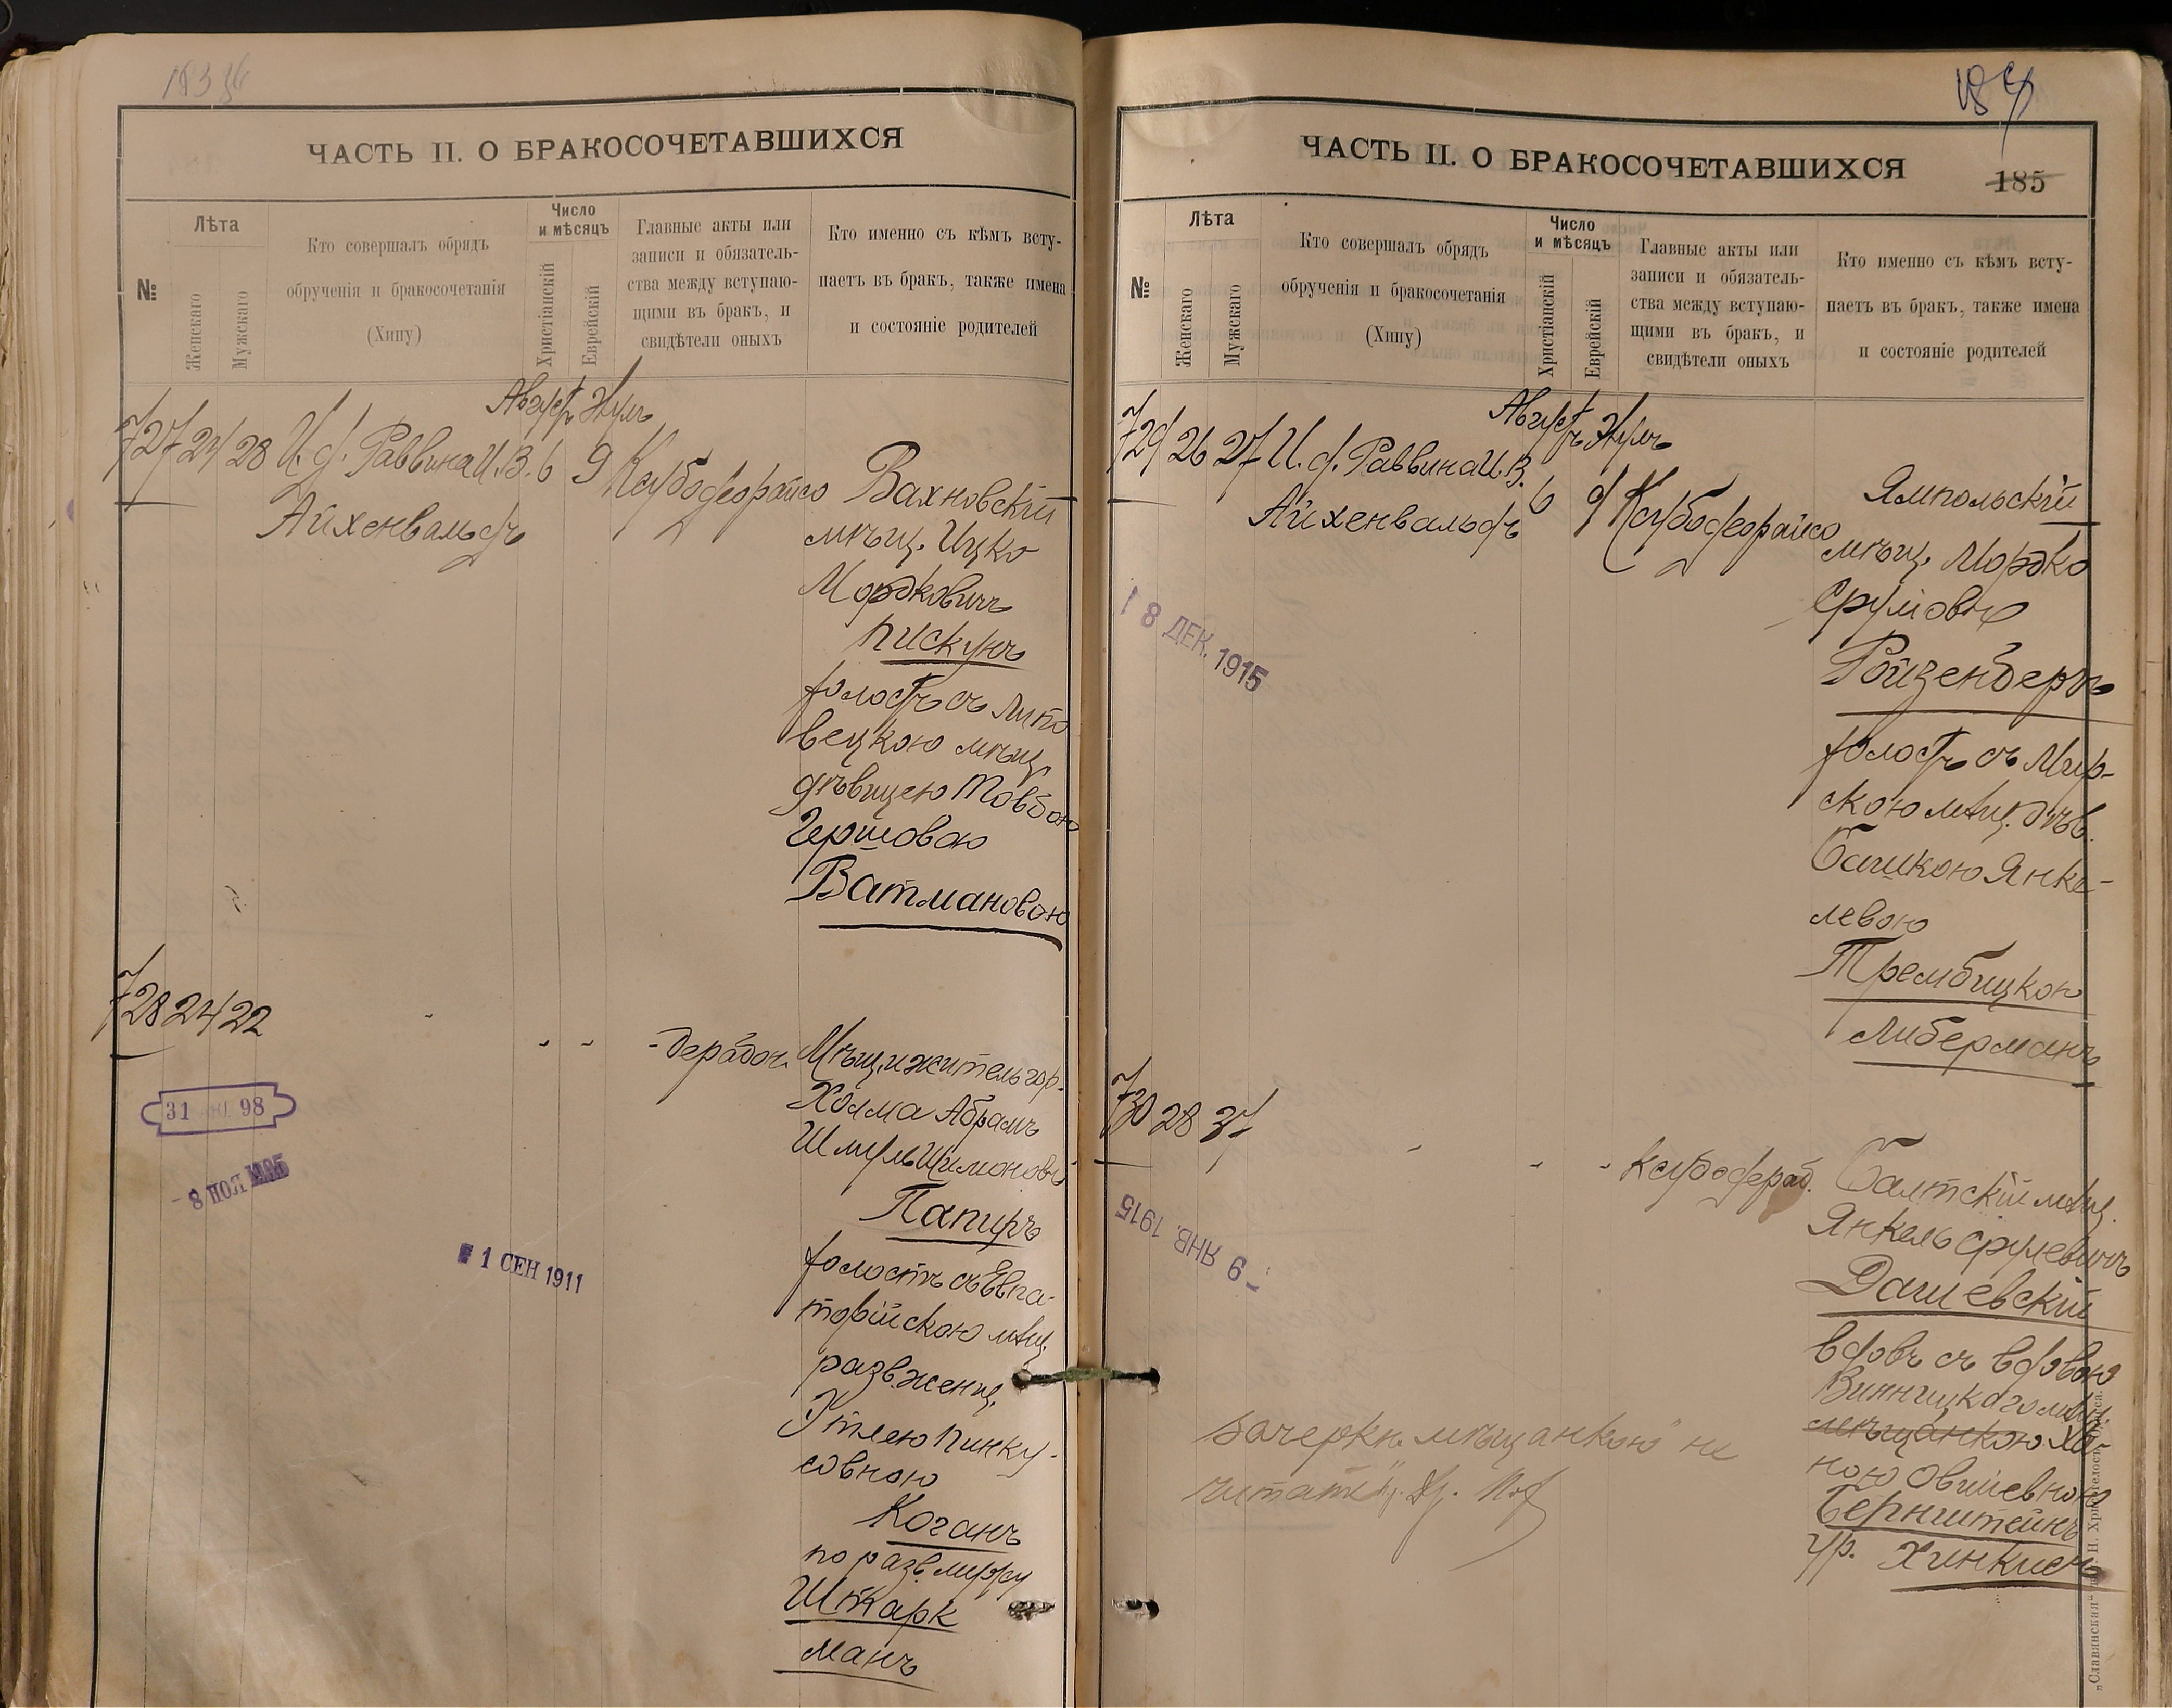 ЧАСТЬ II. О БРАКОСОЧЕТАВШИХСЯ
№
Лѣта
Женскаго
Мужскаго
Кто совершалъ обрядъ
обрученія и бракосочетанія
(Хипу)
Число
и мѣсяцъ
Христіанскій
Еврейскій
Главные акты или
записи и обязатель-
ства между вступаю-
щими въ бракъ, и
свидѣтели оныхъ
Кто именно съ кѣмъ всту-
паетъ въ бракъ, также имена
и состояніе родителей
727 24 28 И. д. Раввина И. В. 6 9
Айхенвальдъ
Вахновскій
мѣщ. Ицко
Мордковичъ
Пискунъ
холостъ съ Липо
вецкою мѣщ
дѣвицею Товбою
Гершовою
Ватмановою
728 24 22
Мѣщ. и житель гор.
Холма Абрамъ
Шмуль Шимоновъ
Папиръ
холостъ съ Евпа-
торійскою мѣщ.
разв. женщ.
Этлею Пинку-
совною
Коганъ
по разв. мужу
Штарк
манъ
31 98
- 8 НОЯ
1 СЕН 1911
ЧАСТЬ II. О БРАКОСОЧЕТАВШИХСЯ
185
№
Лѣта
Женскаго
Мужскаго
Кто совершалъ обрядъ
обрученія и бракосочетанія
(Хипу)
Число
и мѣсяцъ
Христіанскій
Еврейскій
Главные акты или
записи и обязатель-
ства между вступаю-
щими въ бракъ, и
свидѣтели оныхъ
Кто именно съ кѣмъ всту-
паетъ въ бракъ, также имена
и состояніе родителей
729 26 27 И. д. Раввина И. В. 6 9
Айхенвальдъ
Ямпольскій
мѣщ. Мордко
Срулов
Ройзенберъ
холостъ съ Мир-
скою мѣщ. дѣв.
Башкою Янке-
левою
Трембицкою
Либерманъ
18 ДЕК. 1915
730 28 37
Балтскій мѣщ.
Янкель Срулевичъ
Дашевскій
вдовъ съ вдовою
Винницкаго мѣщ.
мѣщанкою Ха-
ною Овшиевною
Бернштейнъ
ур. Хинкисъ
- 9 ЯНВ. 1915
Зачеркн. „мѣщанкою" не
читать